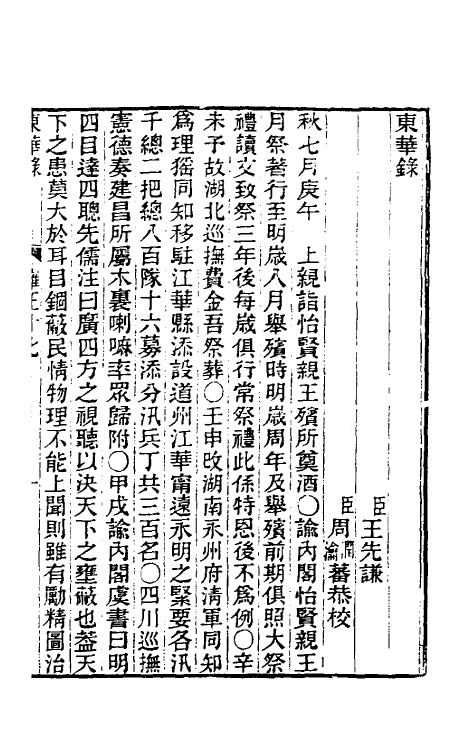 東華錄
臣王先謙
臣周潤蕃瀹蕃恭校
秋七月庚午　上親詣怡賢親王殯所奠酒〇諭內閣怡賢親王
月祭著行至明歲八月舉殯時明歲周年及舉殯前期俱照大祭
禮讀文致祭三年後每歲俱行常祭禮此係特恩後不為例〇辛
未予故湖北巡撫費金吾祭葬〇壬申改湖南永州府清軍同知
為理猺同知移駐江華縣添設道州江華甯遠永明之緊要各汛
千總二把總八百隊十六募添分汛兵丁共三百名〇四川巡撫
憲德奏建昌所屬木裏喇嘛率眾歸附〇甲戌諭內閣虞書曰明
四目達四聰先儒注曰廣四方之視聽以決天下之壅蔽也蓋天
下之患莫大於耳目錮蔽民情物理不能上聞則雖有勵精圖治
東華錄
雍正十七
一